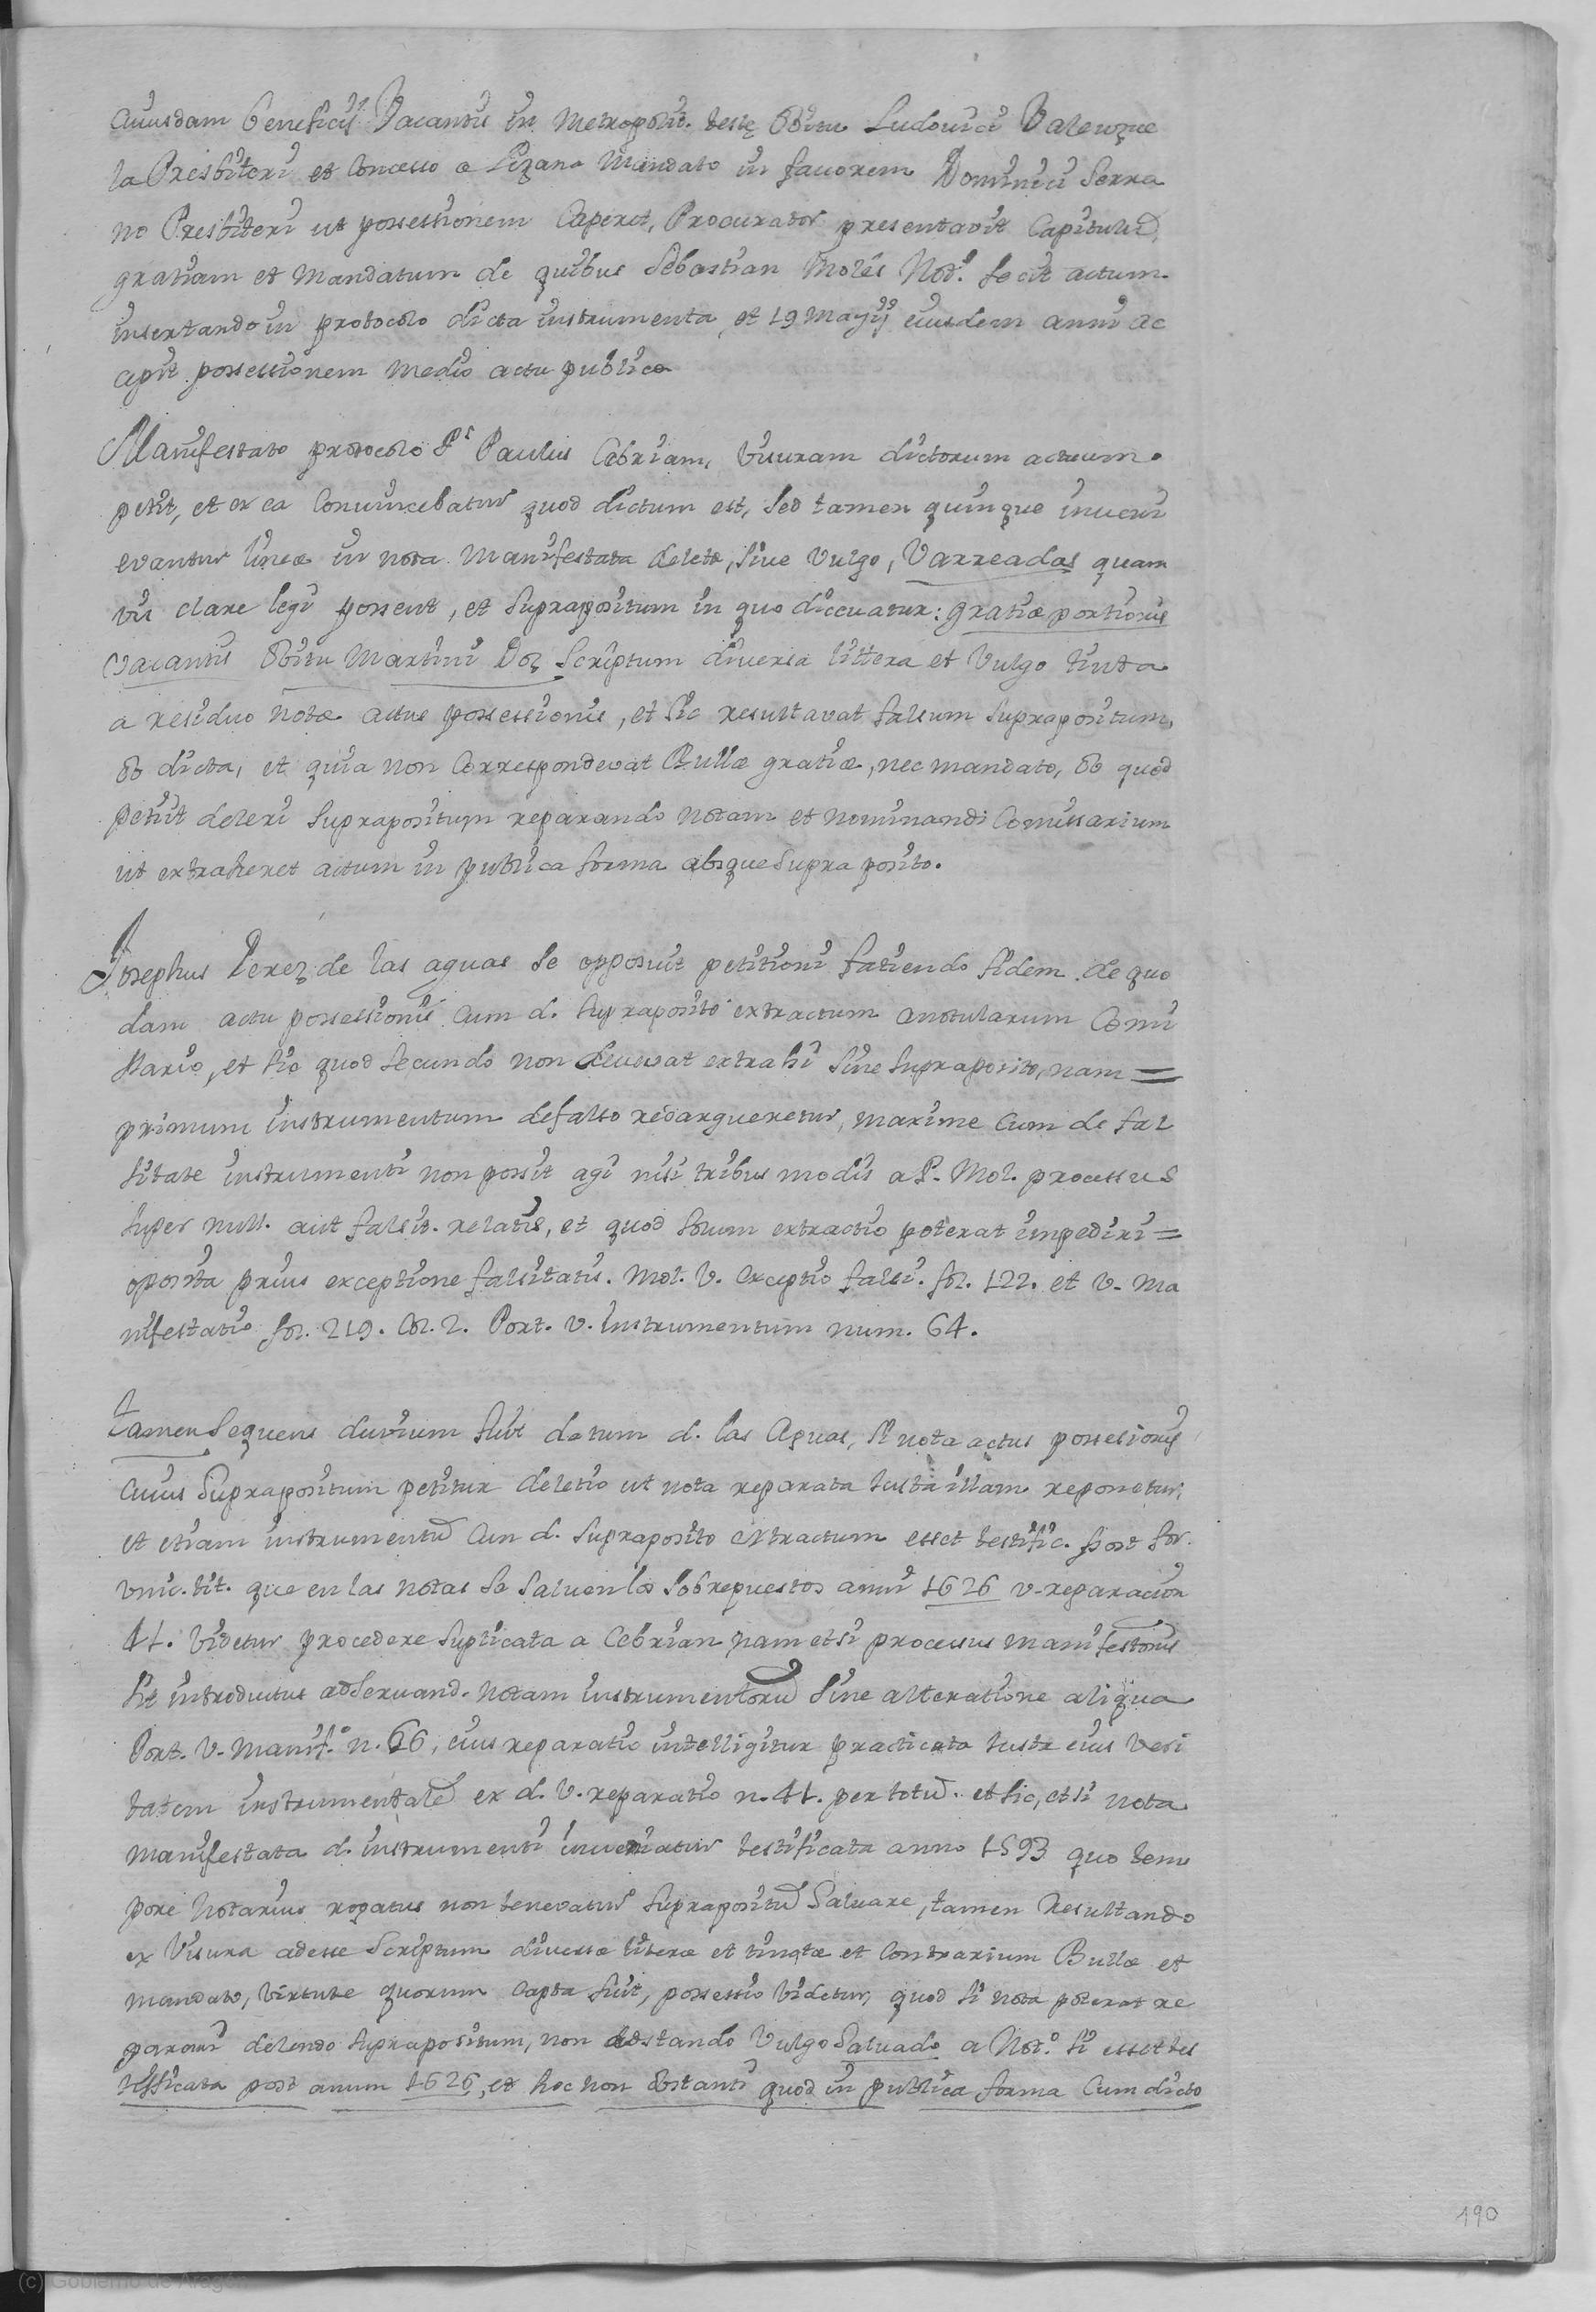 Cuiusdam Beneficij Vacantis in Metropolit. Obitu Ludouici Valenzue
la Presbiteri et Concesso a Lizana Mandato in fauorem Dominici Serra
no Presbiteri ut possessionem Caperet, Procurator presentavit Capitulu,
gratiam et Mandatum de quibus Sebastian Moles Not.º fecit actum
insertando in protocolo dicta instrumenta, et 19 Mayij eiusdem anni ac
cepit possessionem medio actu publico
Manifestato protocolo Pᵉ Paulus Cebriam, Visuram dictorum actuum
petit, et ex ea Convincebatur quod dictum est, Sed tamen quinque inveni
evantur lineæ in nota Manifestata deletæ, sive Vulgo, Varreadas quam
vis clare legi possent, et Suprapositum in quo dicevatur: gratiæ portionis
Vacantis Obitu Martini Doz Scriptum diversa littera et Vulgo tinta
a residuo notæ actus possessionis, et sic resultavat falsum Suprapositum,
ob dicta, et quia non Correspondevat Bullæ gratiæ, nec mandato, ob quod
petiit deleri Suprapositum reparando notam et nominandi Comissarium
ut extraheret actum in publica forma absque Supra posito.
Josephus Perez de las aguas se opposuit petitioni fatiendo fidem de quo
dam actu possessionis cum d. Supraposito extractum anotularum Comi
ssario, et sic quod secundo non devevat extrahi sine supraposito, nam =
primum instrumentum de falso redargueretur, maxime Cum de fal
sitate instrumenti non possit agi nisi tribus modis a P. Mol. processus
super null. aut falsit. relatis, et quod solum extractio poterat impediri =
oposita prius exceptione falsitatis. Mol. V. exceptio falsi. fol. 122. et V. Ma
nifestatio fol. 219. Col. 2. Port. V. instrumentum num. 64.
Tamen Sequens duvium fuit datum d. las Aguas, si nota actus possesionis
Cuius Suprapositum petitur deletio ut nota reparata iusta illam reponetur,
et etiam instrumentu Cum d. Supraposito extractum esset testific. post for.
Unic. tit. que en las notas se saluen los sobrepuestos anni 1626 v. reparacion
41. Videtur procedere suplicata a Cebrian, nam etsi processus manifestonis
sit introductus ad seruand. notam instrumentoru sine alteratione aliqua
Port. V. Manif.º n. 66, eius reparatio intelligitur practicata iusta eius veri
tatem instrumentale ex d. V. reparatio n. 41. per totu. et sic, etsi nota
manifestata d. instrumenti inveniatur testificata anno 1593 quo tem
pore Notarius rogatus non tenevatur Supraposito Saluare, tamen Resultando
ex Visura adesse Scriptum diversæ literæ et tinctæ et Contrarium Bullæ et
mandato, Virtute quorum Capta fuit, possessio Videtur, quod si nota poterat re
parari delendo Suprapositum, non obstando Vulgo Saluado a Not.º si esset tes
tificata post annum 1626, et hoc non obstanti quod in publica forma Cum dicto
190
(c) Gobierno de Aragón